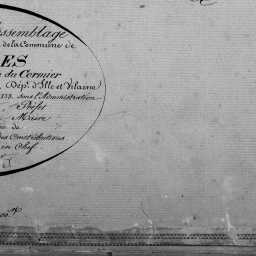 Assemblage
de la Commune de
ES
du Cormier
Dép.t d'Ille et Vilaine
sous l'Administration
Préfet
Maire
de
des Contributions
en Chef